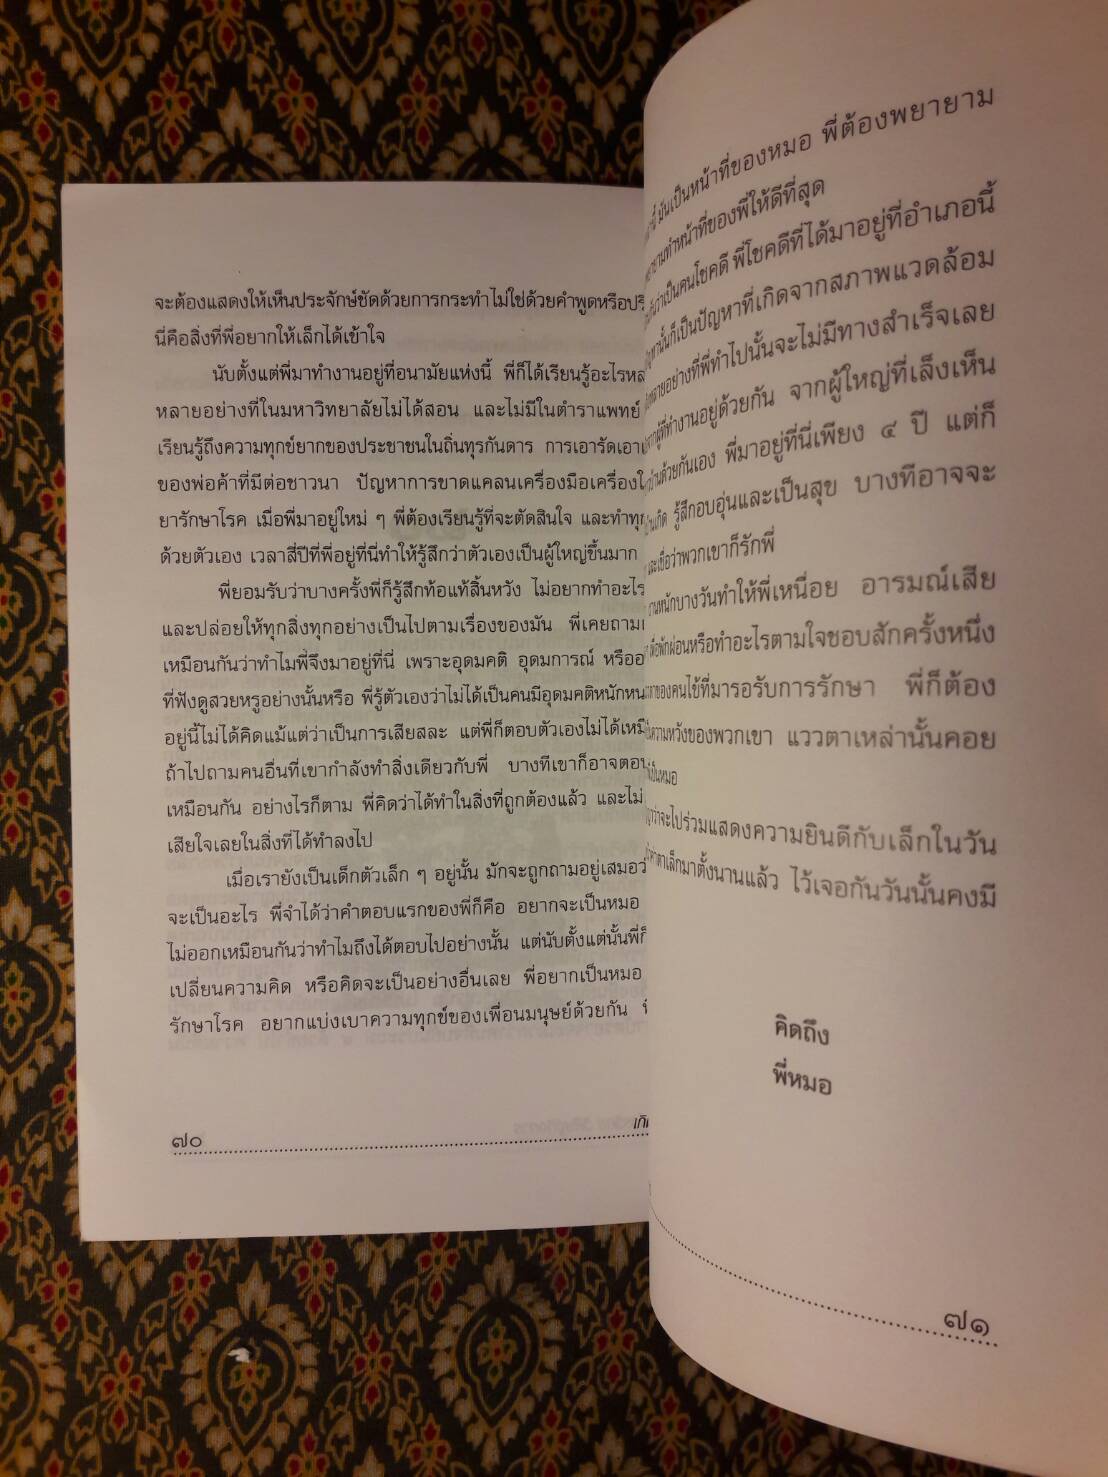 จะต้องแสดงให้เห็นประจักษ์ชัดด้วยการกระทำไม่ใช่ด้วยคำพูดหรือ
นี่คือสิ่งที่พี่อยากให้เล็กได้เข้าใจ
นับตั้งแต่พี่มาทำงานอยู่ที่อนามัยแห่งนี้ พี่ก็ได้เรียนรู้อะไร
หลายอย่างที่ในมหาวิทยาลัยไม่ได้สอน และไม่มีในตำราแพทย์
เรียนรู้ถึงความทุกข์ยากของประชาชนในถิ่นทุรกันดาร การเอารัดเอา
ของพ่อค้าที่มีต่อชาวนา ปัญหาการขาดแคลนเครื่องมือเครื่อง
ยารักษาโรค เมื่อพี่มาอยู่ใหม่ ๆ พี่ต้องเรียนรู้ที่จะตัดสินใจ และทำ
ด้วยตัวเอง เวลาสี่ปีที่พี่อยู่ที่นี่ทำให้รู้สึกว่าตัวเองเป็นผู้ใหญ่ขึ้นมาก
พี่ยอมรับว่าบางครั้งพี่ก็รู้สึกท้อแท้สิ้นหวัง ไม่อยากทำอะไร
และปล่อยให้ทุกสิ่งทุกอย่างเป็นไปตามเรื่องของมัน พี่เคยถาม
เหมือนกันว่าทำไมพี่จึงมาอยู่ที่นี่ เพราะอุดมคติ อุดมการณ์ หรือ
ที่ฟังดูสวยหรูอย่างนั้นหรือ พี่รู้ตัวเองว่าไม่ได้เป็นคนมีอุดมคติหนักหน
อยู่นี้ไม่ได้คิดแม้แต่ว่าเป็นการเสียสละ แต่พี่ก็ตอบตัวเองไม่ได้
ถ้าไปถามคนอื่นที่เขากำลังทำสิ่งเดียวกับพี่ บางทีเขาก็อาจตอบ
เหมือนกัน อย่างไรก็ตาม พี่คิดว่าได้ทำในสิ่งที่ถูกต้องแล้ว และไม่
เสียใจเลยในสิ่งที่ได้ทำลงไป
เมื่อเรายังเป็นเด็กตัวเล็ก ๆ อยู่นั้น มักจะถูกถามอยู่เสมอ
จะเป็นอะไร พี่จำได้ว่าคำตอบแรกของพี่ก็คือ อยากจะเป็นหมอ
ไม่ออกเหมือนกันว่าทำไมถึงได้ตอบไปอย่างนั้น แต่นับตั้งแต่นั้นพี่
เปลี่ยนความคิด หรือคิดจะเป็นอย่างอื่นเลย พี่อยากเป็นหมอ
รักษาโรค อยากแบ่งเบาความทุกข์ของเพื่อนมนุษย์ด้วยกัน
๗๐
มันเป็นหน้าที่ของหมอ พี่ต้องพยายาม
ทำหน้าที่ของพี่ให้ดีที่สุด
ว่าเป็นคนโชคดี พี่โชคดีที่ได้มาอยู่ที่อำเภอนี้
นั้นก็เป็นปัญหาที่เกิดจากสภาพแวดล้อม
หลายอย่างที่พี่ทำไปนั้นจะไม่มีทางสำเร็จเลย
ผู้ที่ทำงานอยู่ด้วยกัน จากผู้ใหญ่ที่เล็งเห็น
ด้วยกันเอง พี่มาอยู่ที่นี่เพียง ๔ ปี แต่ก็
รู้สึกอบอุ่นและเป็นสุข บางทีอาจจะ
และเชื่อว่าพวกเขาก็รักพี่
หนักบางวันทำให้พี่เหนื่อย อารมณ์เสีย
เพื่อพักผ่อนหรือทำอะไรตามใจชอบสักครั้งหนึ่ง
ของคนไข้ที่มารอรับการรักษา พี่ก็ต้อง
ความหวังของพวกเขา แววตาเหล่านั้นคอย
เป็นหมอ
ว่าจะไปร่วมแสดงความยินดีกับเล็กในวัน
เล็กมาตั้งนานแล้ว ไว้เจอกันวันนั้นคงมี
คิดถึง
พี่หมอ
๗๑